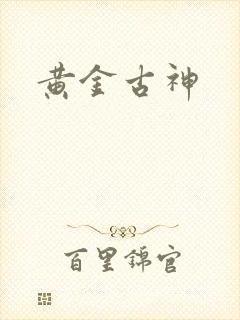 黄金古神
百里錦官